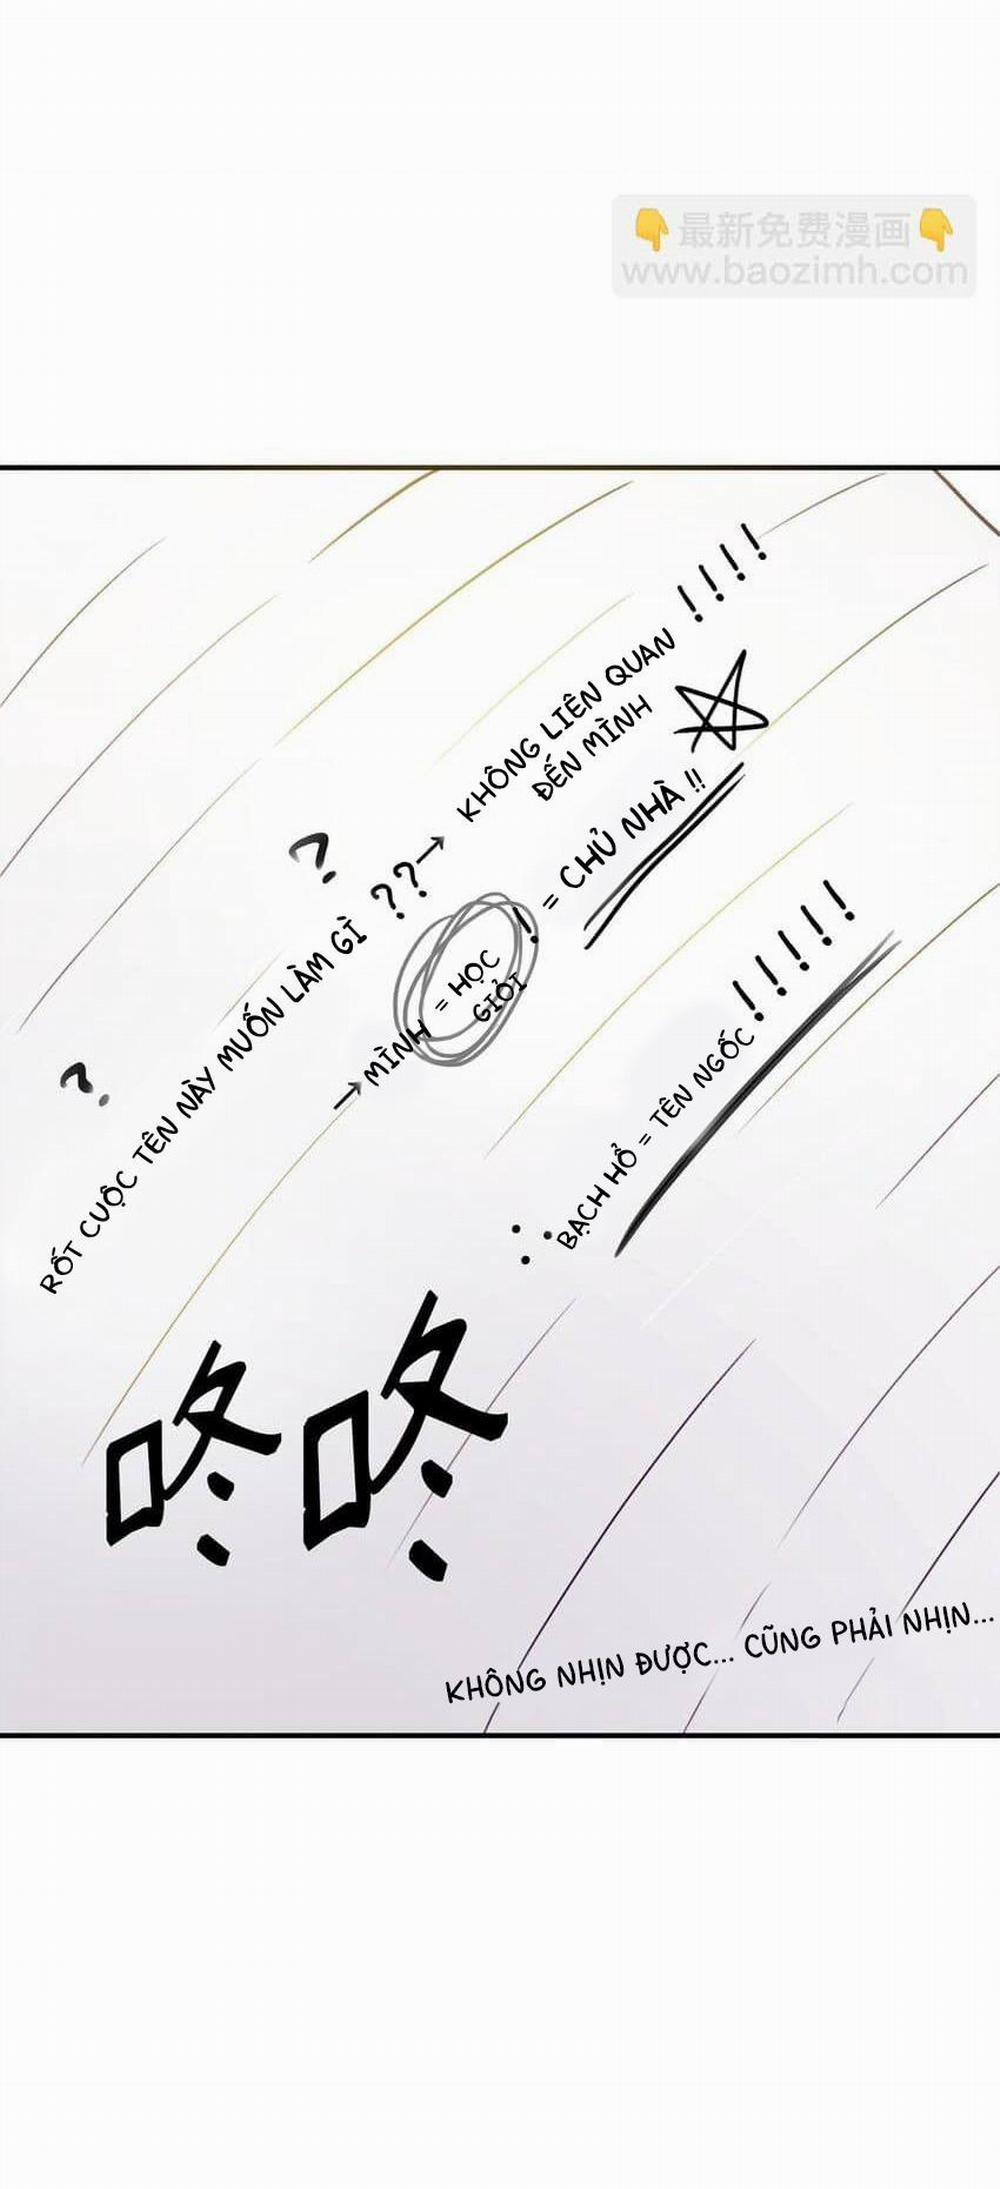 👇最新免费漫画👇
www.baozimh.com
RỐT CUỘC TÊN NÀY MUỐN LÀM GÌ ??→
? ?
KHÔNG LIÊN QUAN !!!!
ĐẾN MÌNH
→ MÌNH = HỌC
GIỎI ! = CHỦ NHÀ !!
∴ BẠCH HỔ = TÊN NGỐC !!!!!
咚咚
KHÔNG NHỊN ĐƯỢC... CŨNG PHẢI NHỊN...